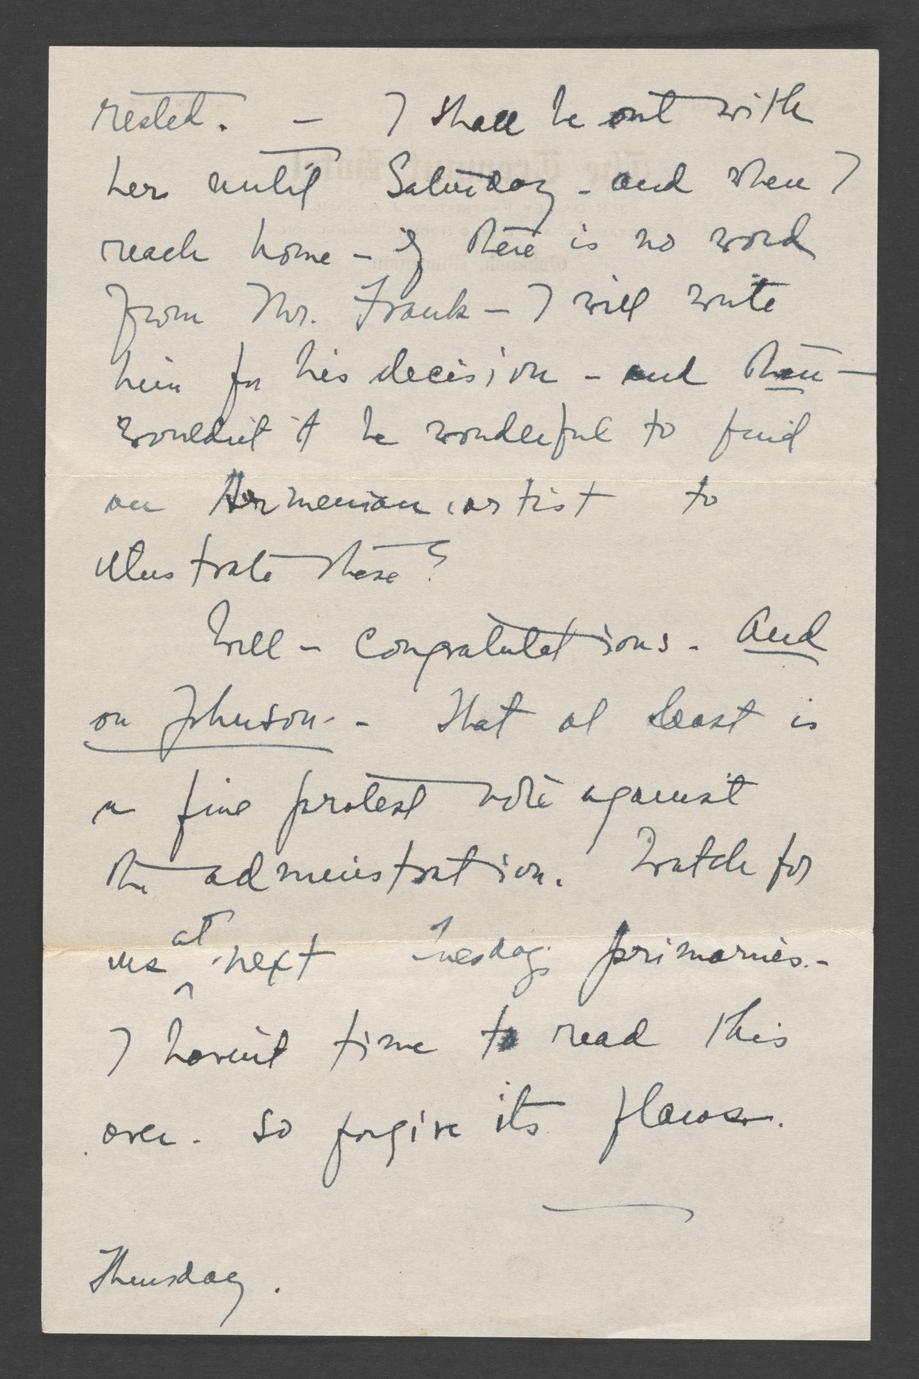 rested. — I shall be out with
her until Saturday - and when I
reach home - if there is no word
from Mr. Frank - I will write
him for his decision - and then —
wouldn't it be wonderful to find
an Armenian artist to
illustrate these?
Well - congratulations. And
on Johnson. - That at least is
a fine protest vote against
the administration. Watch for
us at next Tuesday primaries. -
I haven't time to read this
over. So forgive its flaws.
Thursday.